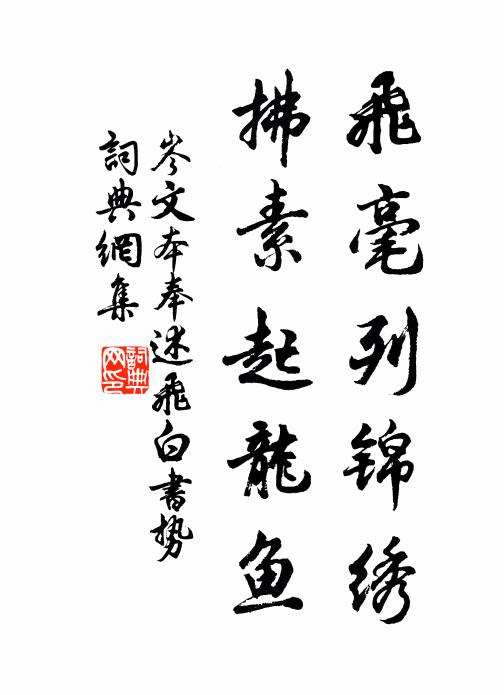 飛毫列锦绣
拂素起龍鱼
岑文本奉述飛白書势
詞典網集
詞典网印